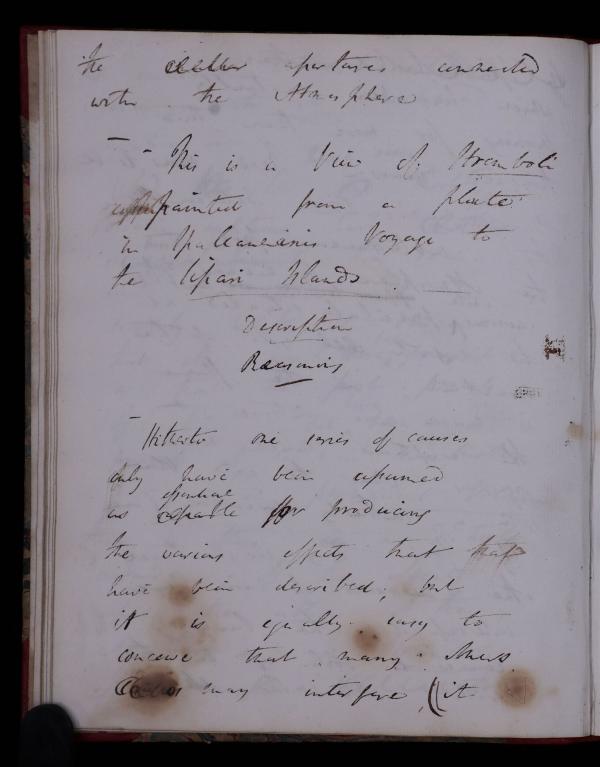 the other apertures connected
with the Atmosphere
— - This is a View of Stromboli
painted from a plate
in Spallanzanis Voyage to
the Lipari Islands. —
Description
Reasonings
— Hitherto one series of causes
only have been assumed
as capable for producing
the various effects that
have been described; but
it is equally easy to
conceive that many others
may interfere (it